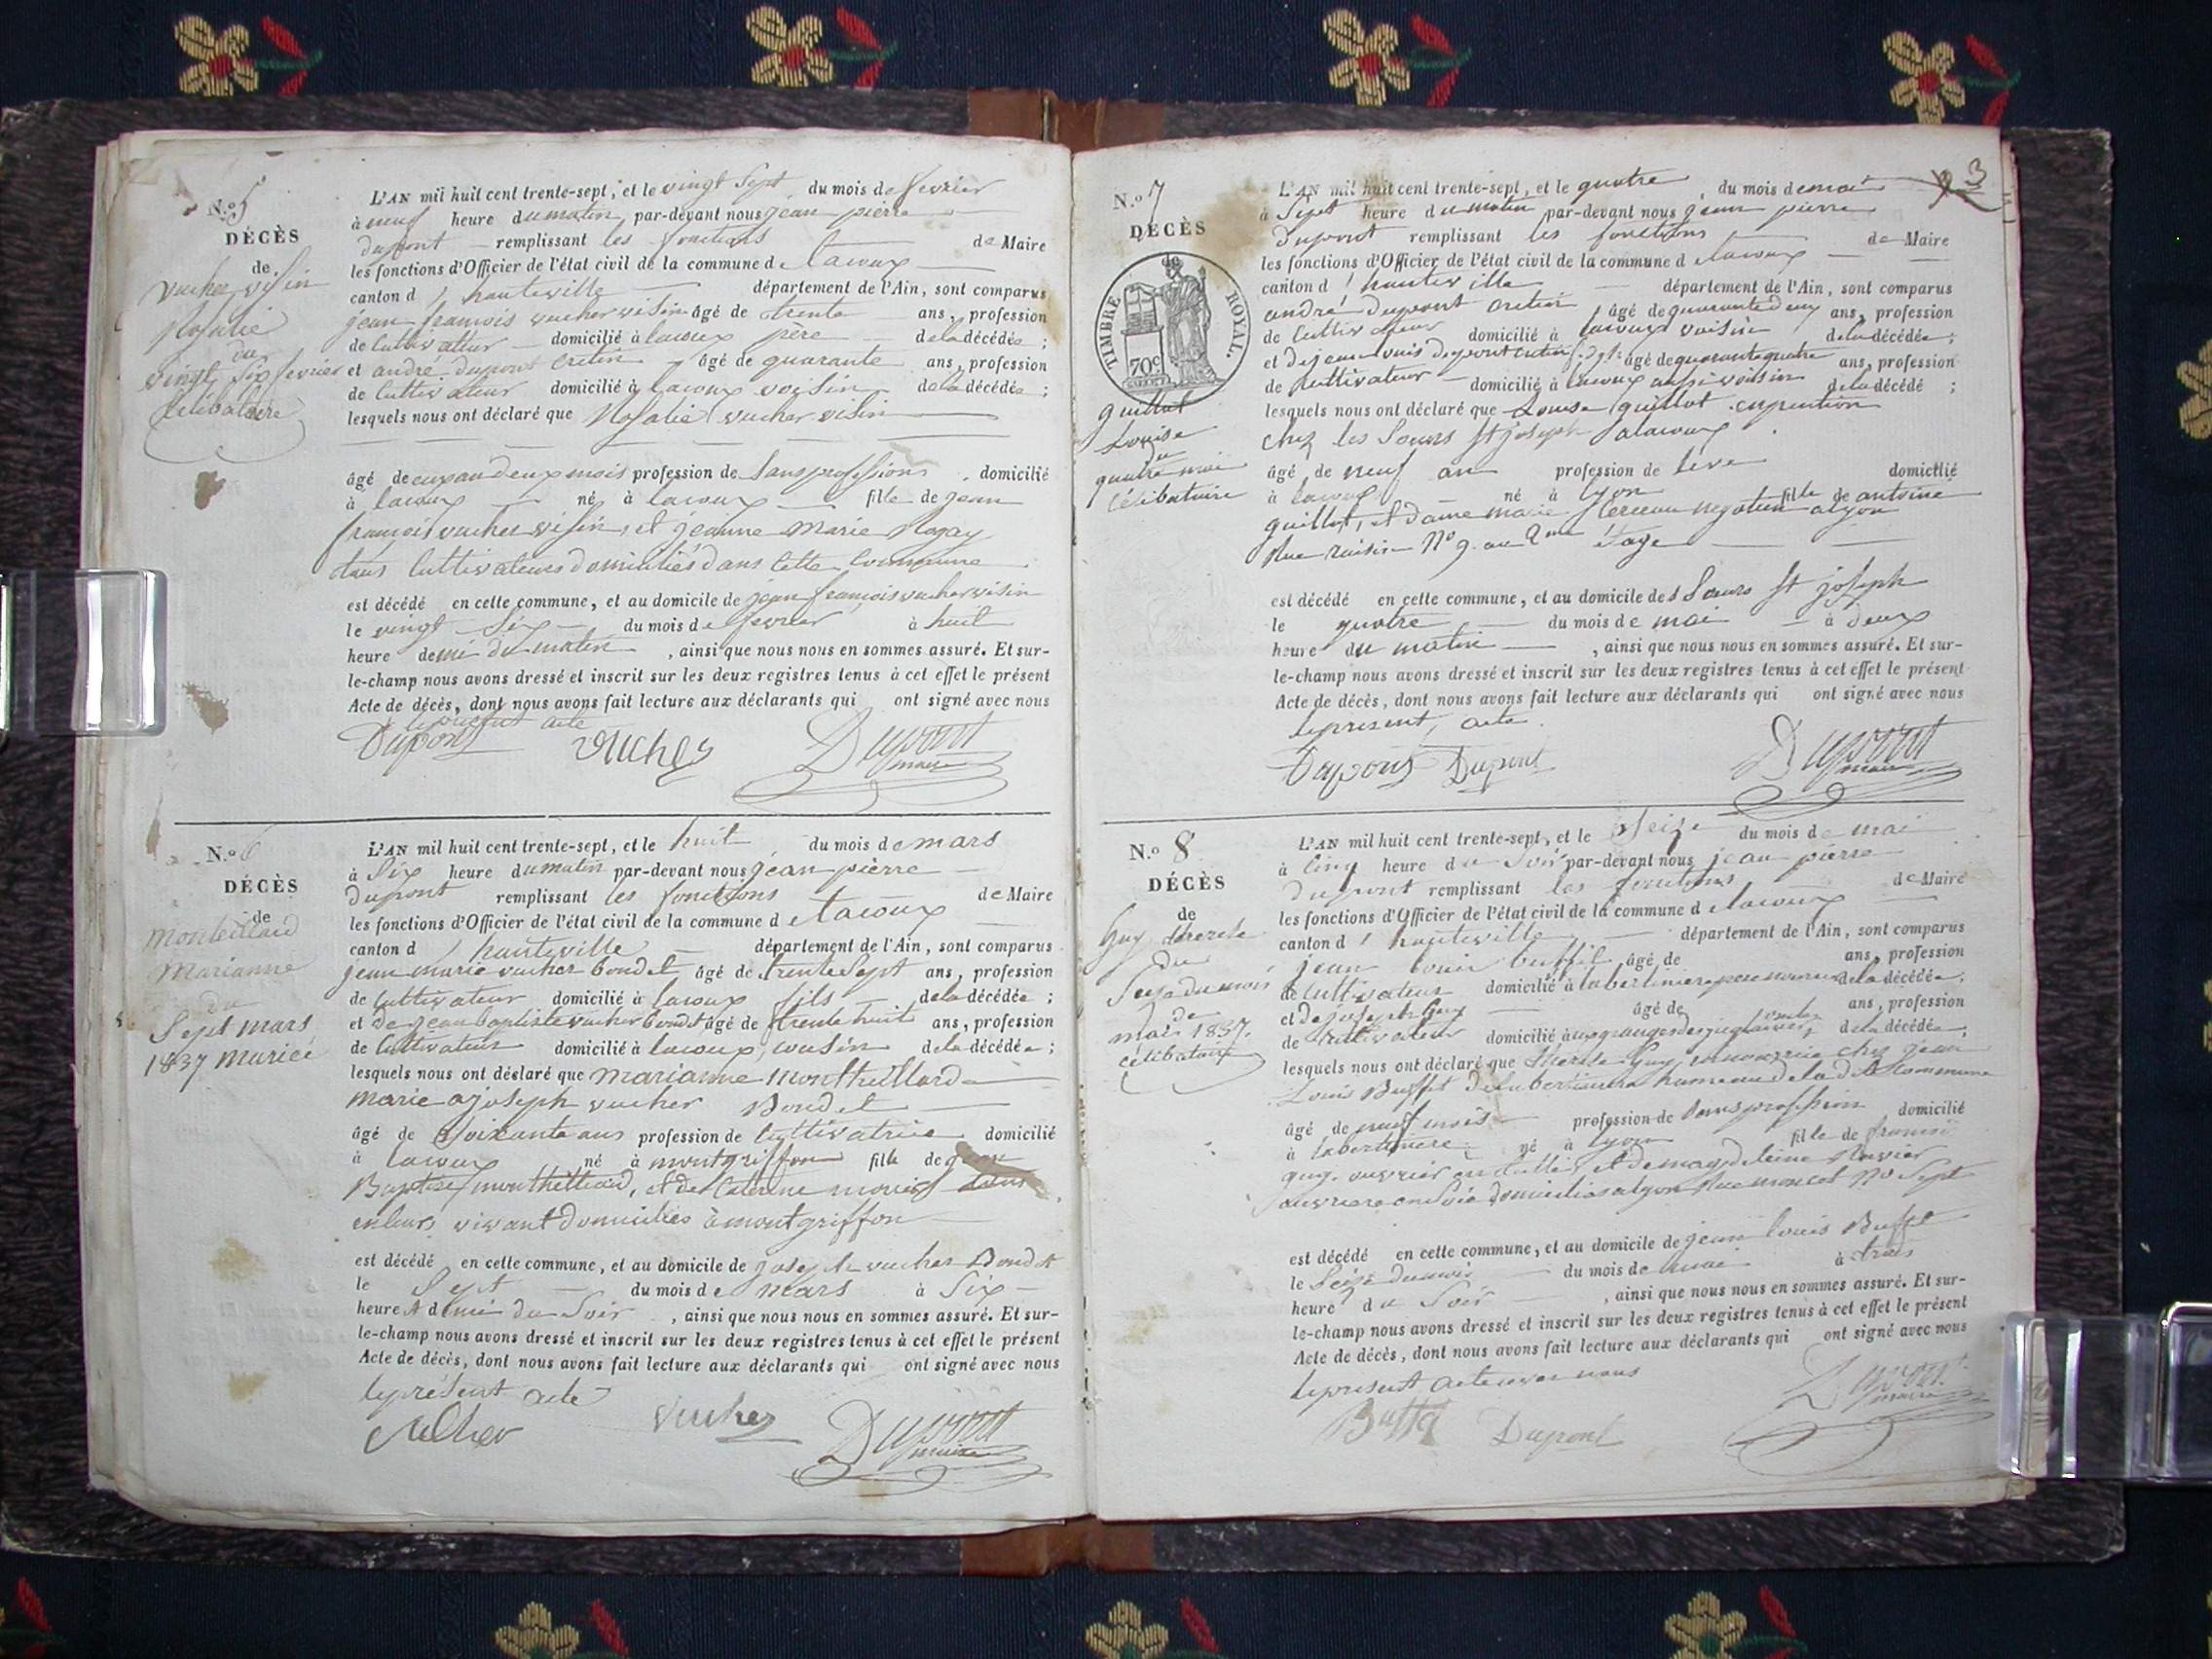 N.o 5
DÉCÈS
de
vucher visin
Rosalie
du
vingt six fevrier
Célibataire
L'AN mil huit cent trente-sept, et le vingt sept du mois de fevrier
à neuf heure du matin, par-devant nous jean pierre
dupont remplissant les fonctions de Maire
les fonctions d'Officier de l'état civil de la commune de lacoux
canton d'hauteville département de l'Ain, sont comparus
jean francois vucher visin âgé de trente ans, profession
de cultivateur domicilié à lacoux père de la décédée ;
et andre dupont cretin âgé de quarante ans, profession
de cultivateur domicilié à lacoux voisin de la décédée ;
lesquels nous ont déclaré que Rosalie vucher visin
âgé de deux mois profession de sans profession domicilié
à lacoux né à lacoux fille de jean
francois vucher visin, et jeanne Marie Rogay
tous cultivateurs domiciliés dans cette commune
est décédé en cette commune, et au domicile de jean francois vucher visin
le vingt six du mois de fevrier à huit
heure demi du matin, ainsi que nous nous en sommes assuré. Et sur-
le-champ nous avons dressé et inscrit sur les deux registres tenus à cet effet le présent
Acte de décès, dont nous avons fait lecture aux déclarants qui ont signé avec nous
le présent acte
Dupont vucher Dupont
maire
N.o 6
DÉCÈS
de
Monteillard
Marianne
du
Sept mars
1837 mariée
L'AN mil huit cent trente-sept, et le huit du mois de mars
à Six heure du matin par-devant nous jean pierre
dupont remplissant les fonctions de Maire
les fonctions d'Officier de l'état civil de la commune de lacoux
canton d'hauteville département de l'Ain, sont comparus
jean marie vucher bondet âgé de trente Sept ans, profession
de cultivateur domicilié à lacoux fils de la décédée ;
et de jean baptiste vucher bondet âgé de trente huit ans, profession
de cultivateur domicilié à lacoux, cousin de la décédée ;
lesquels nous ont déclaré que marianne Montheillard
marie a joseph vucher Bondet
âgé de Soixante ans profession de cultivatrice domicilié
à lacoux né à montgriffon fille de jean
Baptiste montheillard, et de Caterine
en leurs vivant domiciliés à montgriffon
est décédé en cette commune, et au domicile de joseph vucher Bondet
le Sept du mois de mars à Six
heure et demie du Soir, ainsi que nous nous en sommes assuré. Et sur-
le-champ nous avons dressé et inscrit sur les deux registres tenus à cet effet le présent
Acte de décès, dont nous avons fait lecture aux déclarants qui ont signé avec nous
le présent acte
vucher Dupont
maire
3
N.o 7
DÉCÈS
TIMBRE ROYAL.
70c
guillot
Louise
du
quatre mai
célibataire
L'AN mil huit cent trente-sept, et le quatre du mois de mai
à Sept heure du matin par-devant nous jean pierre
dupont remplissant les fonctions de Maire
les fonctions d'Officier de l'état civil de la commune de lacoux
canton d'hauteville département de l'Ain, sont comparus
andré dupont cretin âgé de quarante deux ans, profession
de cultivateur domicilié à lacoux voisin de la décédée ;
et de jean louis dupont cretin âgé de quarante quatre ans, profession
de cultivateur domicilié à lacoux aussi voisin de la décédé ;
lesquels nous ont déclaré que Louise guillot en pention
chez les Sœurs St joseph a lacoux
âgé de neuf an profession de domicilié
à lacoux né à lyon fille de antoine
guillot, et dame marie a lyon
Rue raisin No 9. au 2me Etage
est décédé en cette commune, et au domicile des Sœurs St joseph
le quatre du mois de mai à deux
heure du matin, ainsi que nous nous en sommes assuré. Et sur-
le-champ nous avons dressé et inscrit sur les deux registres tenus à cet effet le présent
Acte de décès, dont nous avons fait lecture aux déclarants qui ont signé avec nous
le present, acte.
Dupont Dupont Dupont
maire
N.o 8
DÉCÈS
de
Guy
du
Seize du mois
de
mai 1837.
célibataire
L'AN mil huit cent trente-sept, et le Seize du mois de mai
à cinq heure du Soir par-devant nous jean pierre
dupont remplissant les fonctions de Maire
les fonctions d'Officier de l'état civil de la commune de lacoux
canton d'hauteville département de l'Ain, sont comparus
jean louis buffet, âgé de ans, profession
de cultivateur domicilié à de la décédée,
et de joseph âgé de ans, profession
de cultivateur domicilié de la décédée,
lesquels nous ont déclaré que Guy, en nourrice chez jean
Louis Buffet hameau de la dite commune
âgé de neuf mois profession de sans profession domicilié
à né à lyon fille de
guy. ouvrier et de magdeleine
ouvriere en Soie domiciliés a lyon Rue No Sept
est décédé en cette commune, et au domicile de jean louis Buffet
le Seize du mois du mois de mai à trois
heure du Soir, ainsi que nous nous en sommes assuré. Et sur-
le-champ nous avons dressé et inscrit sur les deux registres tenus à cet effet le présent
Acte de décès, dont nous avons fait lecture aux déclarants qui ont signé avec nous
le present acte avec nous
Buffet Dupont Dupont
maire